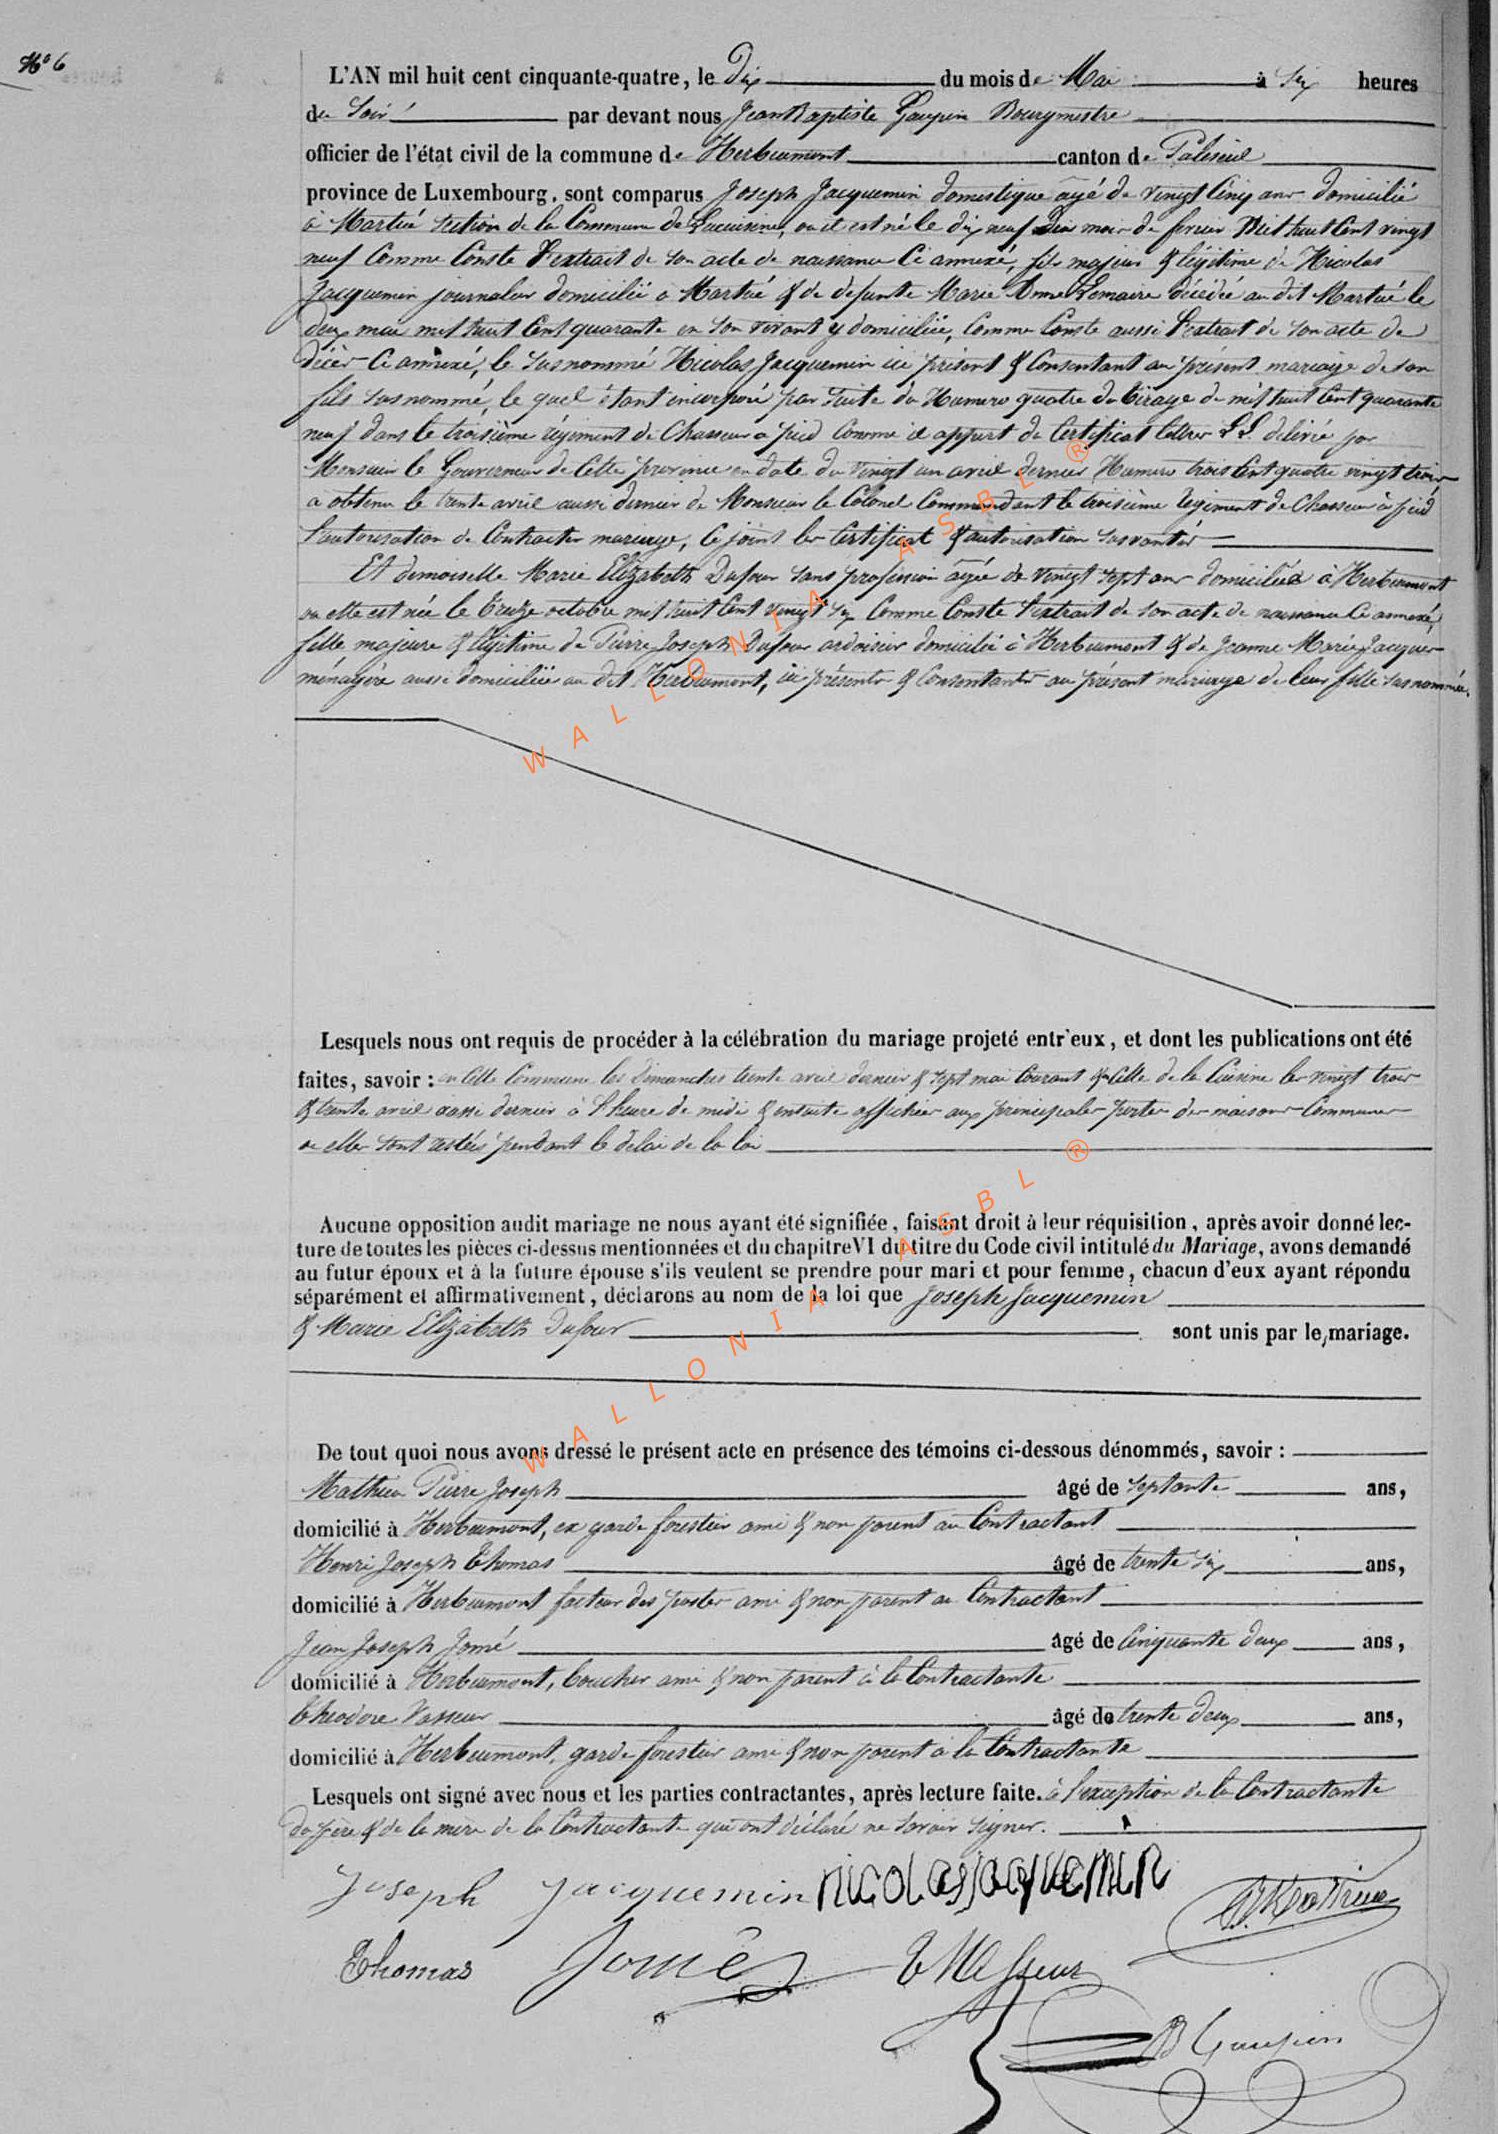 N° 6
L'AN mil huit cent cinquante-quatre, le Dix du mois de Mai à Six heures
du Soir par devant nous Jean Baptiste Gaupin Bourgmestre
officier de l'état civil de la commune de Herbeumont canton de Paliseul
province de Luxembourg, sont comparus Joseph Jacquemin domestique âgé de vingt Cinq ans domicilié
à Martué section de la Commune de Lacuisine, ou il est né le dix neuf du mois de fevrier Mil huit Cent vingt
neuf Comme Conste l'extrait de son acte de naissance Ci annexé, fils majeur & légitime de Nicolas
Jacquemin journalier domicilié à Martué & de défunte Marie Anne Lemaire décédée au dit Martué le
deux mai mil huit Cent quarante en son vivant y domiciliée, Comme Conste aussi l'extrait de son acte de
décès Ci annexé, le susnommé Nicolas Jacquemin ici présent & Consentant au présent mariage de son
fils susnommé, le quel étant incorporé par suite du Numero quatre du tirage de mil huit Cent quarante
neuf dans le troisième régiment de Chasseurs à pied Comme il appert du Certificat lettres LL. délivré par
Monsieur le Gouverneur de Cette province en date du vingt un avril dernier Numero trois Cent quatre vingt trois
a obtenu le trente avril aussi dernier de Monsieur le Colonel Commandant le troisième régiment de Chasseurs à pied
l'autorisation de Contracter mariage, Ci joint les Certificat & autorisation susvantés
Et demoiselle Marie Elizabeth Dufour sans profession âgée de vingt sept ans domiciliée à Herbeumont
ou elle est née le treize octobre mil huit Cent vingt six Comme Conste l'extrait de son acte de naissance Ci annexé,
fille majeure & légitime de Pierre Joseph Dufour ardoisier domicilié à Herbeumont & de Jeanne Marie Jacques
ménagère aussi domiciliée au dit Herbeumont, ici présents & Consentants au présent mariage de leur fille susnommée.
Lesquels nous ont requis de procéder à la célébration du mariage projeté entr'eux, et dont les publications ont été
faites, savoir : en Cette Commune les Dimanches trente avril dernier & sept mai Courant & en Celle de la Cuisine les vingt trois
& trente avril aussi dernier à l'heure de midi & ensuite affichées aux principales portes des maisons Communes
ou elles sont restées pendant le délai de la loi
Aucune opposition audit mariage ne nous ayant été signifiée, faisant droit à leur réquisition, après avoir donné lec-
ture de toutes les pièces ci-dessus mentionnées et du chapitre VI du titre du Code civil intitulé du Mariage, avons demandé
au futur époux et à la future épouse s'ils veulent se prendre pour mari et pour femme, chacun d'eux ayant répondu
séparément et affirmativement, déclarons au nom de la loi que Joseph Jacquemin
& Marie Elizabeth Dufour sont unis par le mariage.
De tout quoi nous avons dressé le présent acte en présence des témoins ci-dessous dénommés, savoir :
Mathieu Pierre Joseph âgé de septante ans,
domicilié à Herbeumont, ex garde forestier ami & non parent au Contractant
Henri Joseph Thomas âgé de trente six ans,
domicilié à Herbeumont facteur des postes ami & non parent au Contractant
Jean Joseph Jomé âgé de Cinquante deux ans,
domicilié à Herbeumont, boucher ami & non parent à la Contractante
Théodore Vasseur âgé de trente deux ans,
domicilié à Herbeumont, garde forestier ami & non parent à la Contractante
Lesquels ont signé avec nous et les parties contractantes, après lecture faite. à l'exception de la Contractante
du père & de la mère de la Contractante qui ont déclaré ne savoir signer.
Joseph Jacquemin nicolas jacquemin
Thomas Jomé
JB Gaupin
WALLONIA ASBL ®
WALLONIA ASBL ®